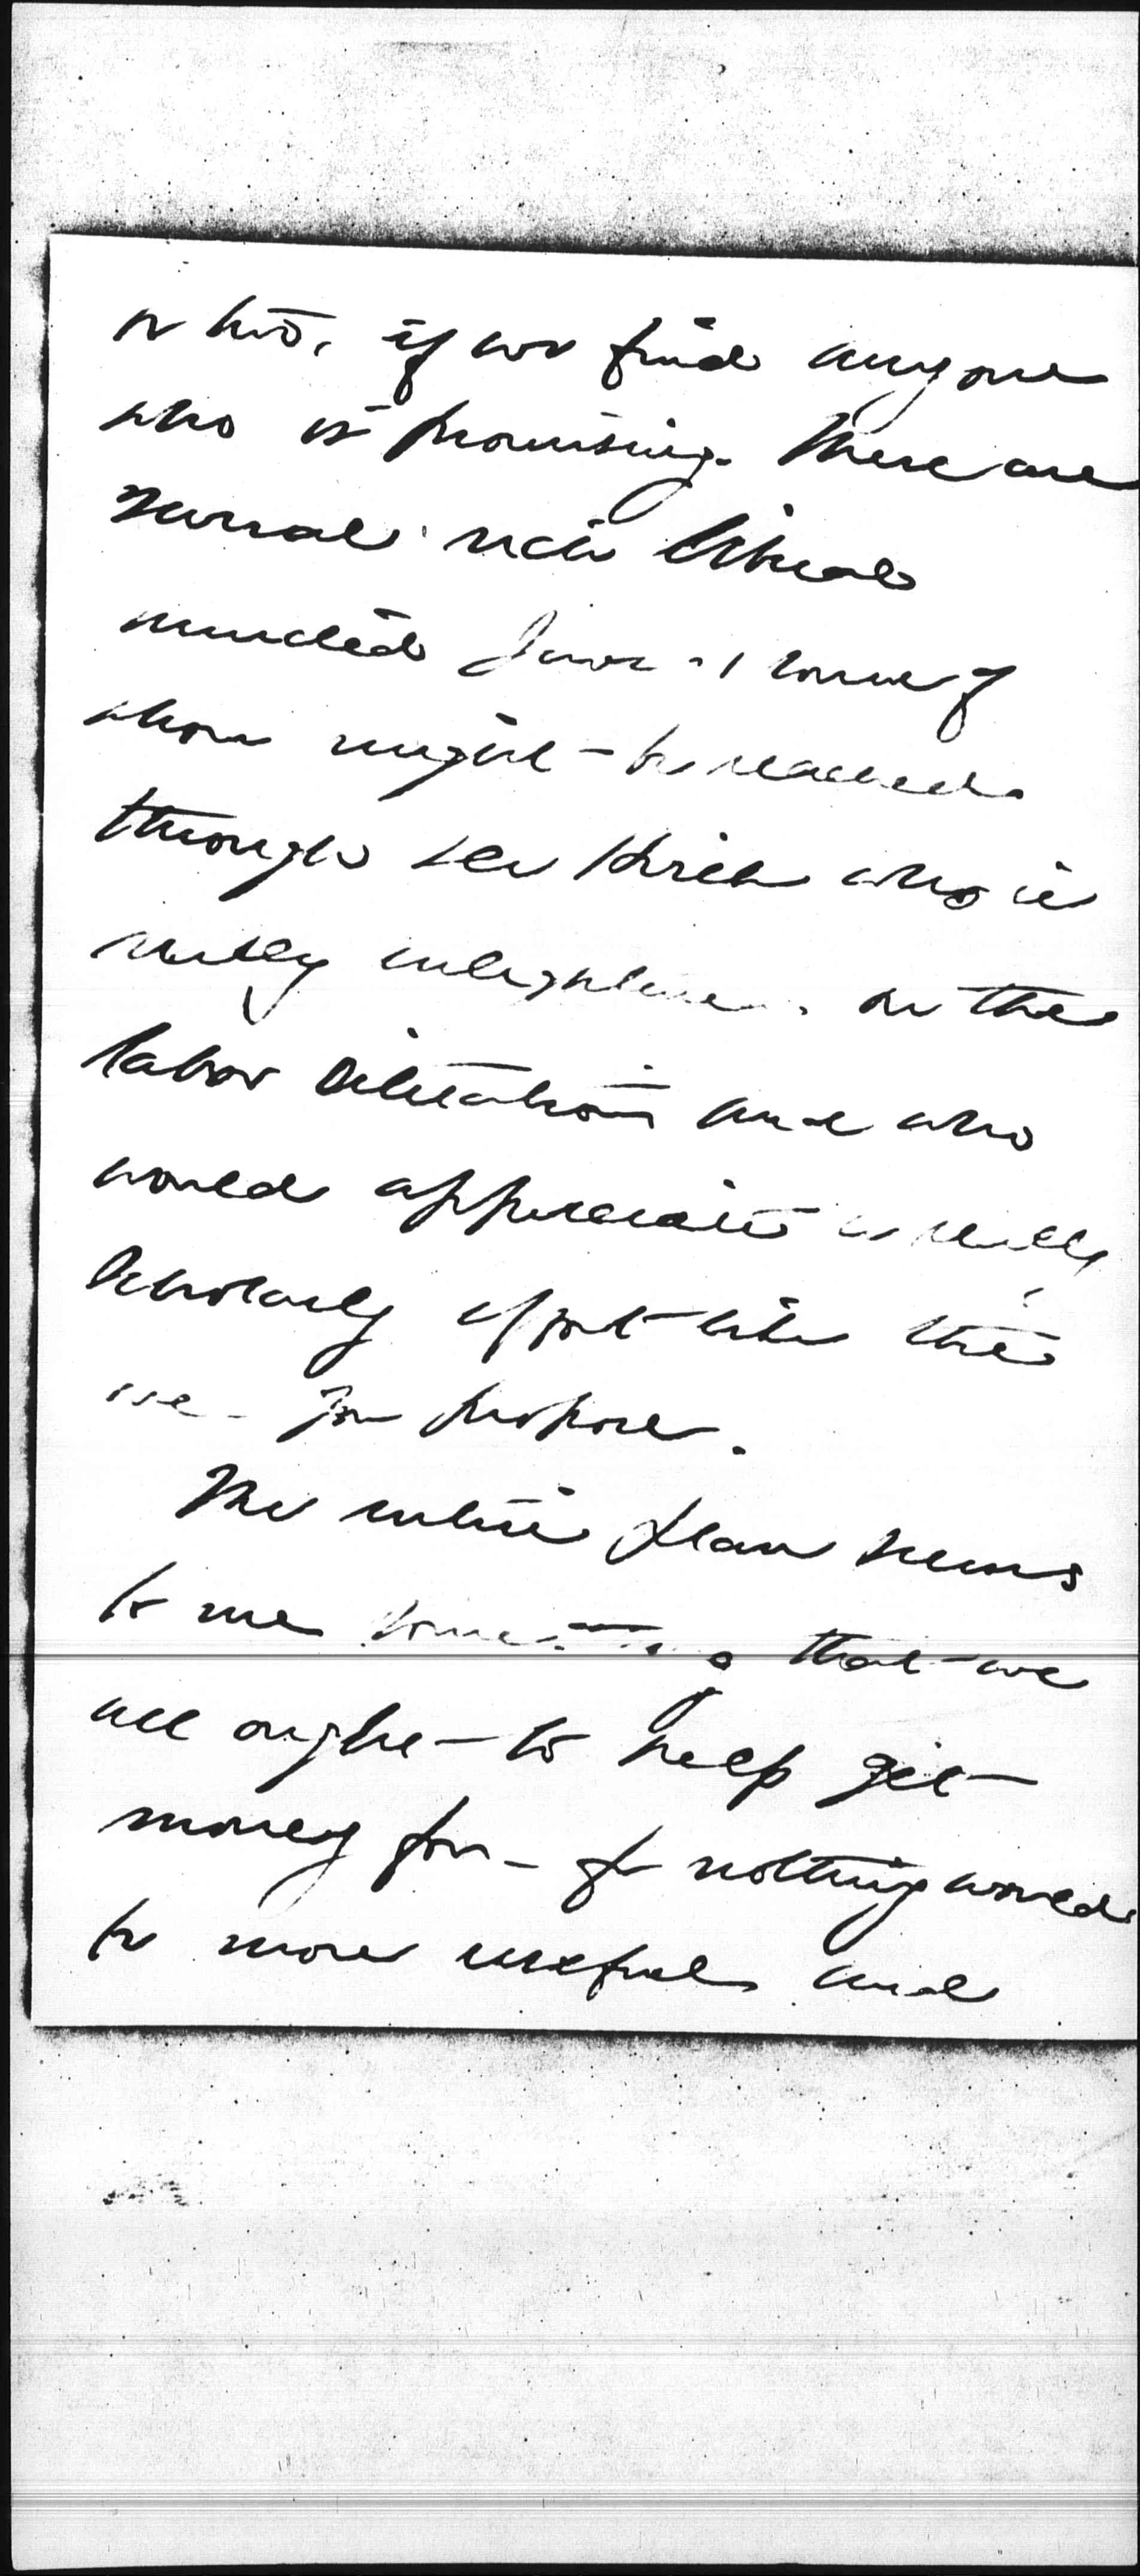 or two, if we find anyone
who is promising. There are
several rich liberal
minded Jews - some of
whom might be reached
through Hirsch who is
really enlightened on the
labor situation and who
would appreciate a really
scholarly effort like the
one you propose.
The entire plan seems
to me something that we
all ought to help get
money for - for nothing would
be more useful and